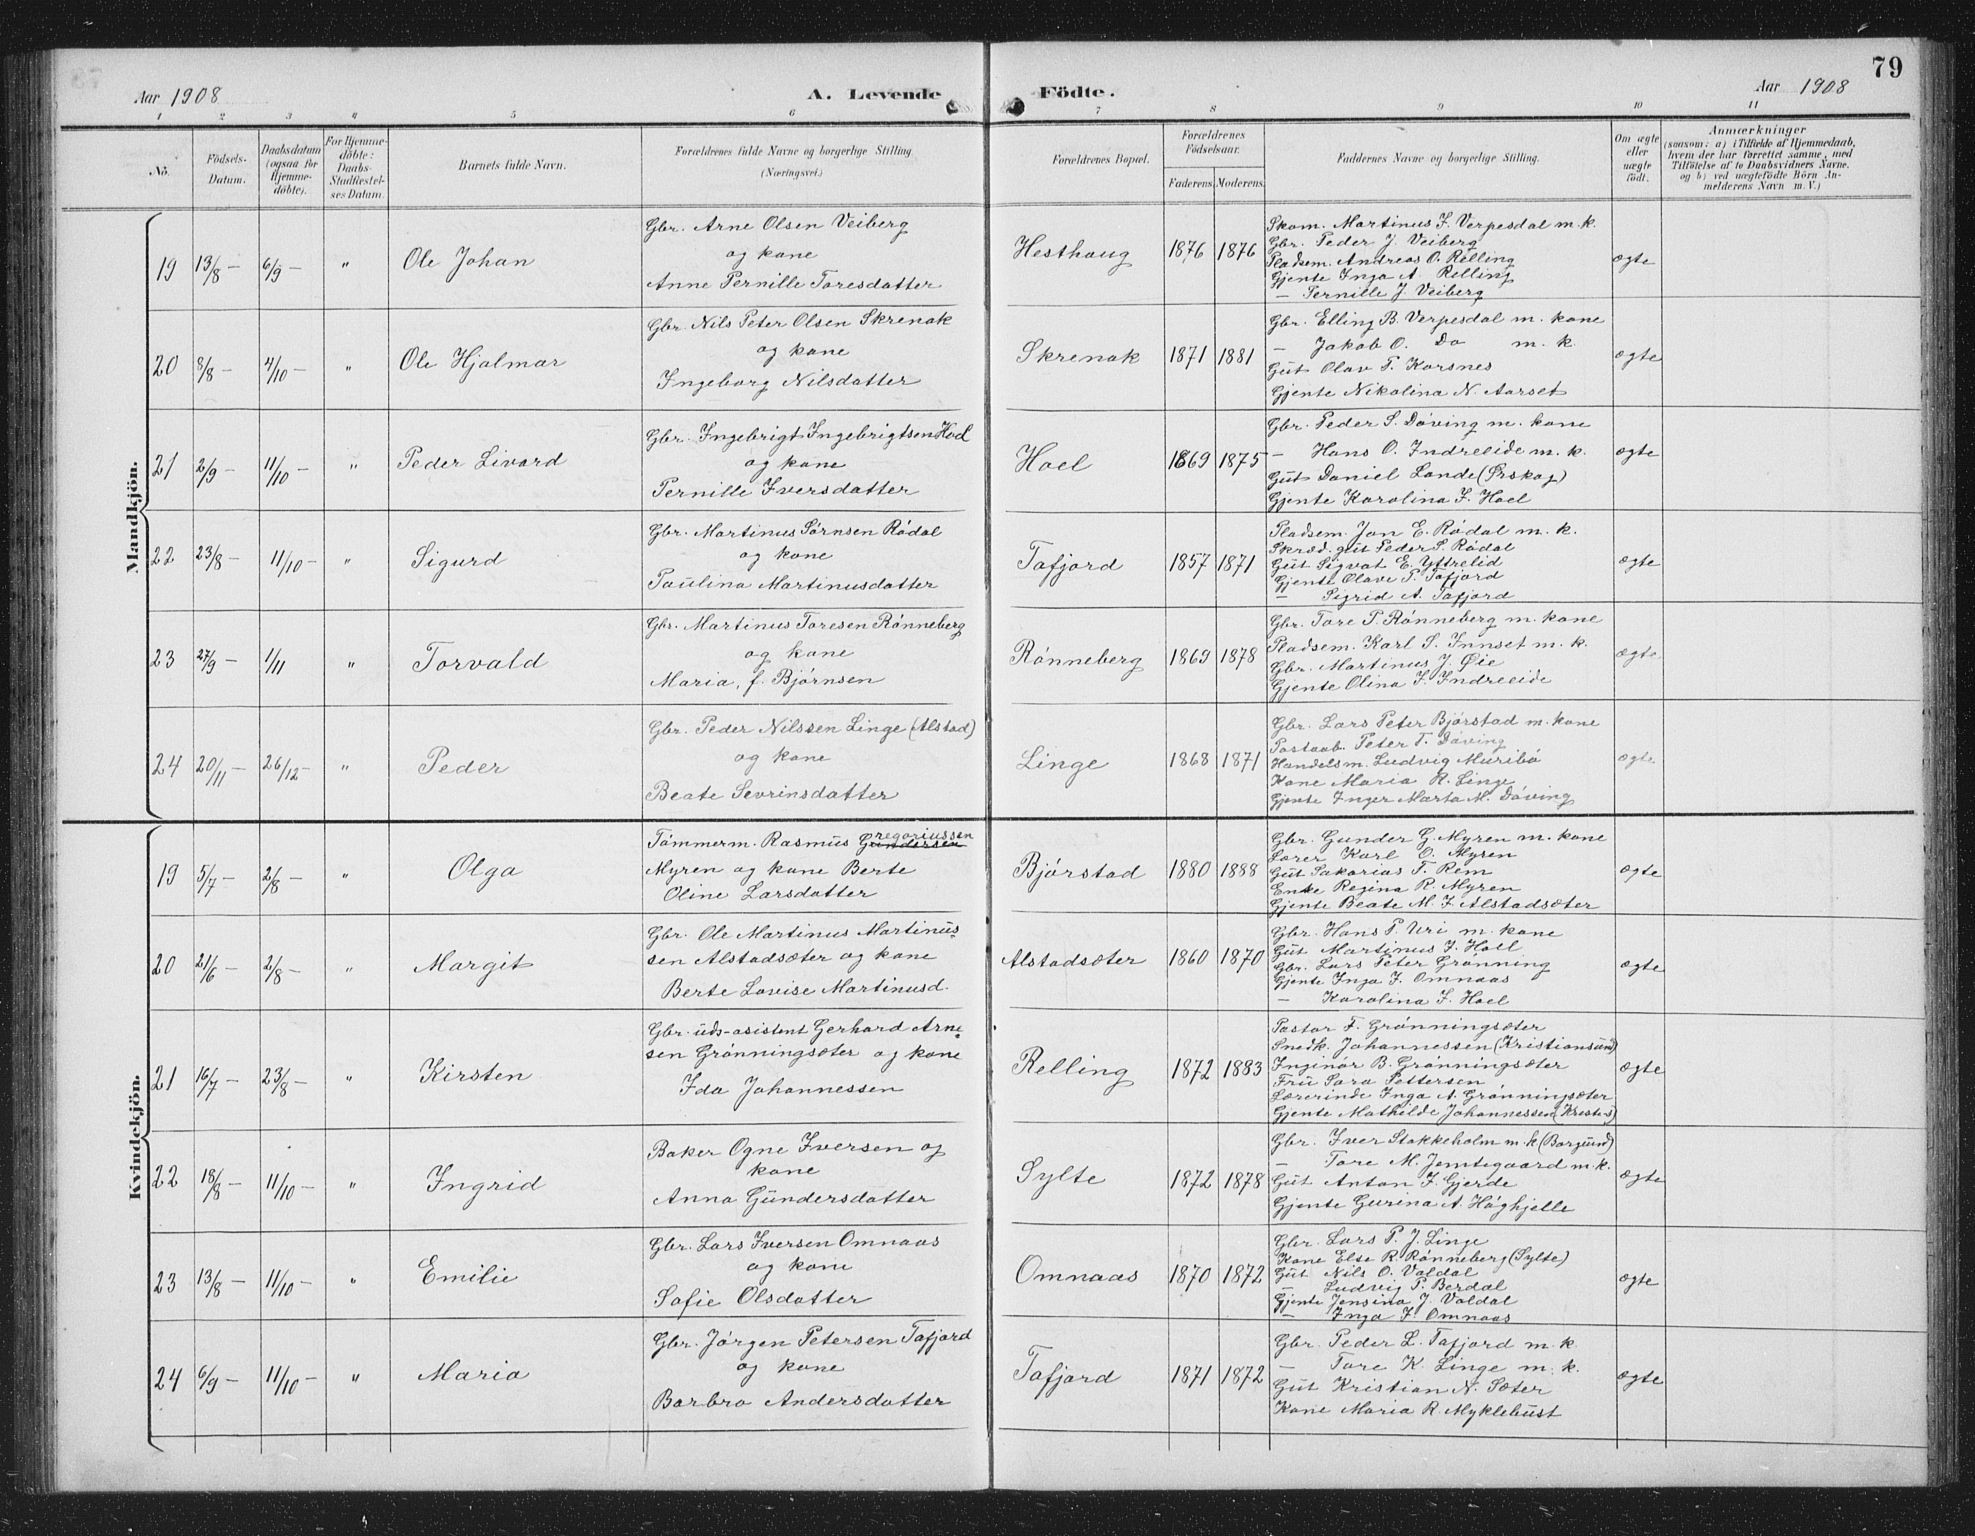 79
Aar 1908
A. Levende
Födte.
Aar 1908
1 2 3 4 5 6 7 8 9 10 11
No.
Födsels-Datum.
Daabsdatum (ogsaa for Hjemme-döbte).
For Hjemme-döbte: Daabs-Stadfæstel-ses Datum.
Barnets fulde Navn.
Forældrenes fulde Navne og borgerlige Stilling.
(Næringsvei.)
Forældrenes Bopæl.
Forældrenes Födselsaar.
Faderens. Moderens.
Faddernes Navne og borgerlige Stilling.
Om ægte eller uægte födt.
Anmærkninger
(saasom: a) i Tilfælde af Hjemmedaab, hvem der har forrettet samme, med Tilföielse af to Daabsvidners Navne, og b) ved uægtefödte Börn An-melderens Navn m. V.)
Mandkjön.
19 13/8 — 6/9 — " Ole Johan
Gbr. Arne Olsen Veiberg
og kone
Anne Pernille Toresdatter
Hesthaug 1876 1876
Skom. Martinus I. Verpesdal m. k.
Gbr. Peder J. Veiberg
Pladsem. Andreas O. Relling
Gjente Inga A. Relling
— Pernille J. Veiberg
ægte
20 8/8 — 4/10 — " Ole Hjalmar
Gbr. Nils Peter Olsen Skrenak
og kone
Ingeborg Nilsdatter
Skrenak 1871 1881
Gbr. Elling B. Verpesdal m. kone
— Jakob O. Do m. k.
Gut Olav P. Korsnes
Gjente Nikolina N. Aarset
ægte
21 2/9 — 11/10 — " Peder Livard
Gbr. Ingebrigt Ingebrigtsen Hoel
og kone
Pernille Iversdatter
Hoel 1869 1875
Gbr. Peder S. Döving m. kone
— Hans O. Indreeide m. k.
Gut Daniel Lande (Ørskog)
Gjente Karolina I. Hoel
ægte
22 23/8 — 11/10 — " Sigurd
Gbr. Martinus Sørnsen Rödal
og kone
Paulina Martinusdatter
Tafjord 1857 1871
Pladsem. Jon E. Rödal m. k.
Skræd. gut Peder S. Rödal
Gut Sigvat E. Yttrelid
Gjente Olave P. Tafjord
— Sigrid A. Tafjord
ægte
23 27/9 — 1/11 " Torvald
Gbr. Martinus Toresen Rönneberg
og kone
Maria, f. Bjørnsen
Rönneberg 1869 1878
Gbr. Tore P. Rönneberg m. kone
Pladsem. Karl S. Innset m. k.
Gbr. Martinus J. Øie
Gjente Olina I. Indreeide
ægte
24 20/11 — 26/12 — " Peder
Gbr. Peder Nilssen Linge (Alstad)
og kone
Beate Sevrinsdatter
Linge 1868 1871
Gbr. Lars Peter Bjørstad m. kone
Postaab. Peter T. Döving
Handelsm. Ludvig Muribö
Kone Maria R. Linge
Gjente Inger Marta M. Döving
ægte
Kvindekjön.
19 5/7 — 2/8 — " Olga
Tömmerm. Rasmus Gregoriussen
Myren og kone Berte
Oline Larsdatter
Bjørstad 1880 1888
Gbr. Gunder G. Myren m. kone
Lærer Karl O. Myren
Gut Sakarias T. Rem
Enke Regina R. Myren
Gjente Beate M. I. Alstadsæter
ægte
20 21/6 2/8 — " Margit
Gbr. Ole Martinus Martinus-
sen Alstadsæter og kone
Berte Lovise Martinusd.
Alstadsæter 1860 1870
Gbr. Hans P. Uri m. kone
Gut Martinus I. Hoel
Gbr. Lars Peter Grönning
Gjente Inga I. Omnaas
— Karolina I. Hoel
ægte
21 16/7 — 23/8 — " Kirsten
Gbr. uds-asistent Gerhard Arne-
sen Grönningsæter og kone
Ida Johannessen
Relling 1872 1883
Pastor F. Grönningsæter
Snedk. Johannessen (Kristiansund)
Inginör B. Grönningsæter
Fru Sara Pettersen
Lærerinde Inga A. Grönningsæter
Gjente Mathilde Johannessen (Kristes)
ægte
22 18/8 — 11/10 — " Ingrid
Baker Ogne Iversen og
kone
Anna Gundersdatter
Sylte 1872 1878
Gbr. Iver Stokkeholm m. k (Borgund)
— Tore M. Jemtegaard m. k.
Gut Anton I. Gjerde
Gjente Gurina A. Höghjelle
ægte
23 13/8 — 11/10 — " Emilie
Gbr. Lars Iversen Omnaas
og kone
Sofie Olsdatter
Omnaas 1870 1872
Gbr. Lars P. J. Linge
Kone Else R. Rönneberg (Sylte)
Gut Nils O. Valdal
— Ludvig P. Berdal
Gjente Jensina J. Valdal
— Inga I. Omnaas
ægte
24 6/9 — 11/10 — " Maria
Gbr. Jörgen Petersen Tafjord
og kone
Barbro Andersdatter
Tafjord 1871 1872
Gbr. Peder L. Tafjord m. k
— Tore K. Linge m. k.
Gut Kristian N. Sæter
Kone Maria R. Myklebust
ægte